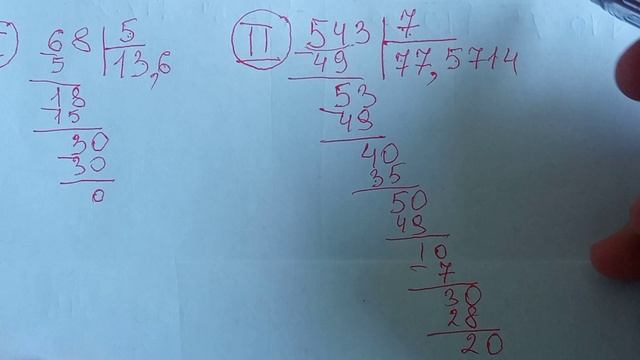 I 68 5
5 13,6
18
15
30
30
0
II 543 7
49 77,5714
53
49
40
35
50
49
10
- 7
30
28
20